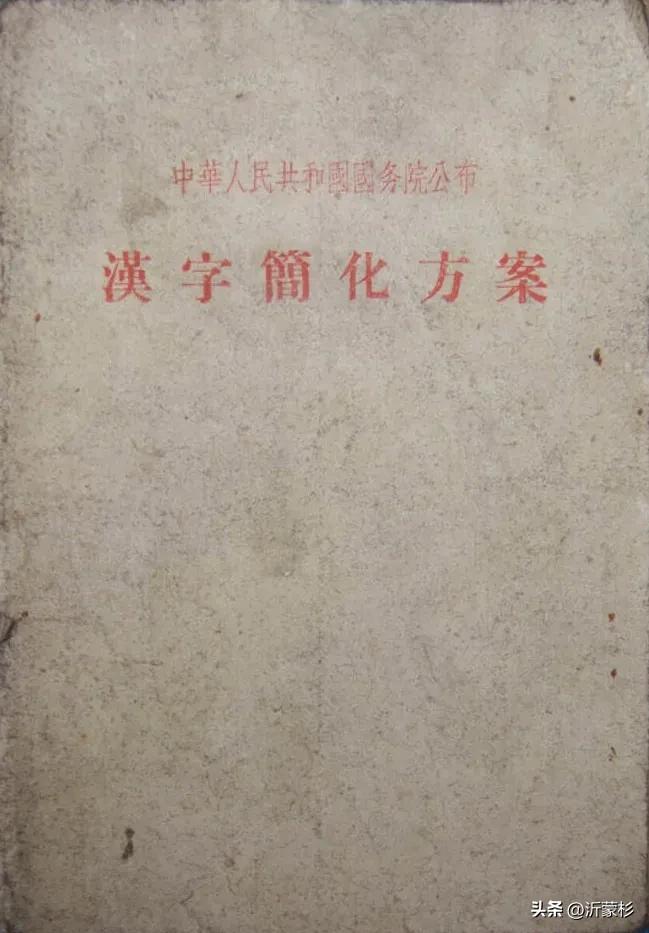 中華人民共和國國务院公布
漢字簡化方案
头条 @沂蒙杉